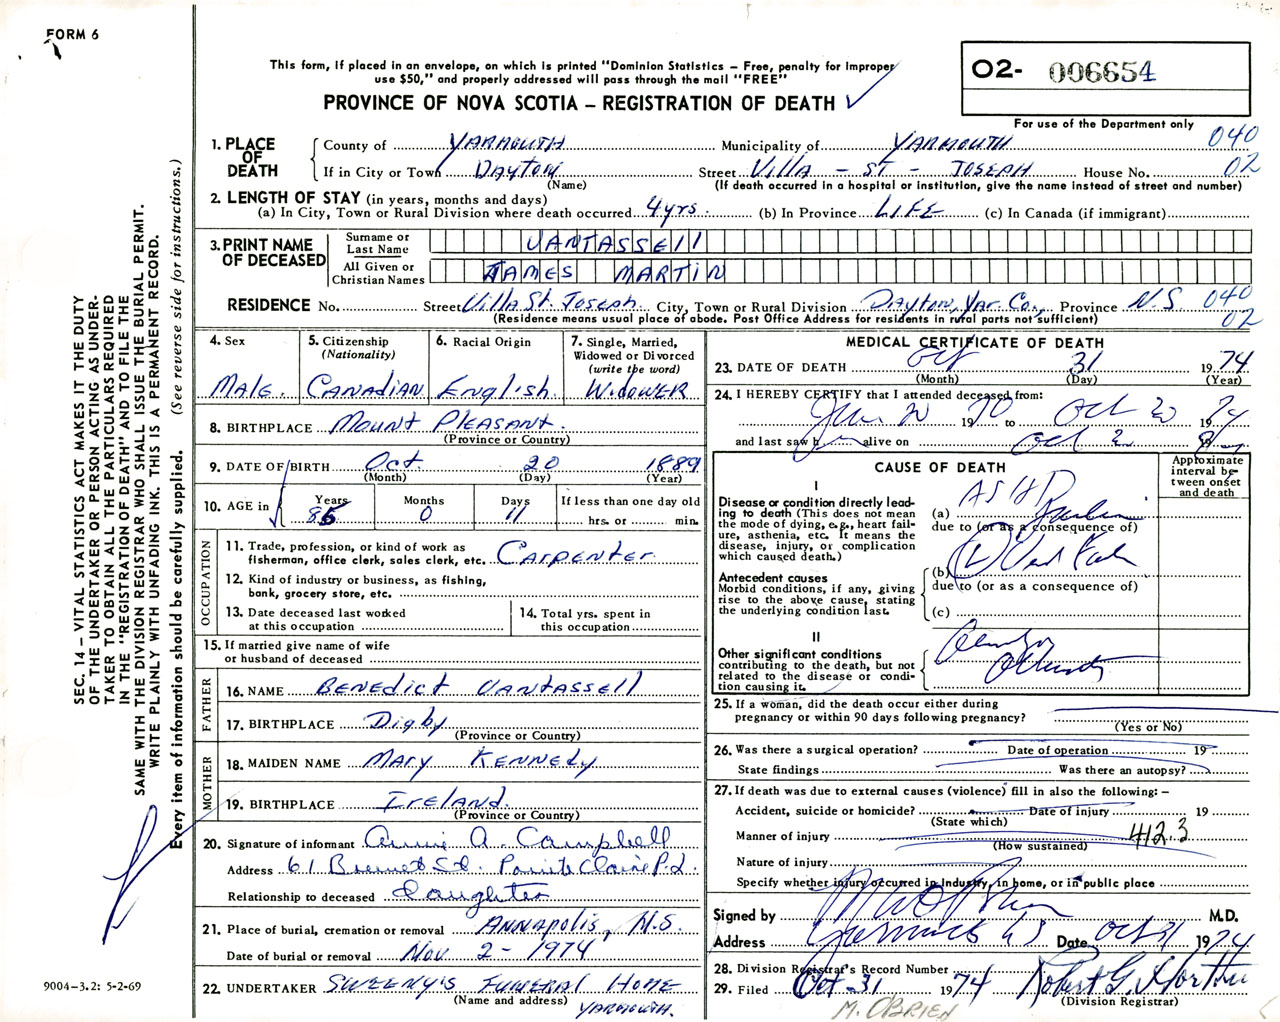 FORM 6
This form, if placed in an envelope, on which is printed "Dominion Statistics – Free, penalty for improper
use $50," and properly addressed will pass through the mail "FREE"
PROVINCE OF NOVA SCOTIA – REGISTRATION OF DEATH
02- 006654
For use of the Department only
1. PLACE OF DEATH
County of YARMOUTH Municipality of YARMOUTH 040
If in City or Town DAYTON Street Villa - ST - JOSEPH House No. 02
(Name) (If death occurred in a hospital or institution, give the name instead of street and number)
2. LENGTH OF STAY (in years, months and days)
(a) In City, Town or Rural Division where death occurred 4 yrs. (b) In Province LIFE (c) In Canada (if immigrant)
3. PRINT NAME OF DECEASED
Surname or Last Name VANTASSEll
All Given or Christian Names JAMES MARTIN
RESIDENCE No. Street Villa St. Joseph City, Town or Rural Division Dayton, Yar. Co., Province N.S. 040
(Residence means usual place of abode. Post Office Address for residents in rural parts not sufficient) 02
4. Sex
Male.
5. Citizenship
(Nationality)
CANADIAN
6. Racial Origin
English.
7. Single, Married,
Widowed or Divorced
(write the word)
WidOWER
8. BIRTHPLACE Mount PleasANT.
(Province or Country)
9. DATE OF BIRTH Oct. 20 1889
(Month) (Day) (Year)
10. AGE in
Years Months Days If less than one day old
85 0 11 hrs. or min.
OCCUPATION
11. Trade, profession, or kind of work as
fisherman, office clerk, sales clerk, etc. CArpenter.
12. Kind of industry or business, as fishing,
bank, grocery store, etc.
13. Date deceased last worked
at this occupation
14. Total yrs. spent in
this occupation
15. If married give name of wife
or husband of deceased
FATHER
16. NAME BENEdict VANTASSEll
17. BIRTHPLACE Digby
(Province or Country)
MOTHER
18. MAIDEN NAME MARY KENNEdy
19. BIRTHPLACE IrelAND.
(Province or Country)
20. Signature of informant Annie A. Campbell
Address 61 St. Pointe Claire P.Q.
Relationship to deceased daughter
21. Place of burial, cremation or removal ANNApolis, N.S.
Date of burial or removal Nov. 2 - 1974
22. UNDERTAKER SWEENY'S FUNERAL HOME
(Name and address) YARMOUTH.
MEDICAL CERTIFICATE OF DEATH
23. DATE OF DEATH Oct 31 1974
(Month) (Day) (Year)
24. I HEREBY CERTIFY that I attended deceased from:
1970 to Oct 1974
and last saw h alive on Oct 19
CAUSE OF DEATH
Approximate interval between onset and death
I
Disease or condition directly leading to death (This does not
mean the mode of dying, e.g., heart failure, asthenia, etc. It means the
disease, injury, or complication
which caused death.)
(a) ASHD
due to (or as a consequence of)
Antecedent causes
Morbid conditions, if any, giving
rise to the above cause, stating
the underlying condition last.
(b)
due to (or as a consequence of)
(c)
II
Other significant conditions
contributing to the death, but not
related to the disease or condition causing it.
25. If a woman, did the death occur either during
pregnancy or within 90 days following pregnancy?
(Yes or No)
26. Was there a surgical operation? Date of operation 19
State findings Was there an autopsy?
27. If death was due to external causes (violence) fill in also the following: –
Accident, suicide or homicide? Date of injury 19
(State which)
Manner of injury 412.3
(How sustained)
Nature of injury
Specify whether injury occurred in Industry, in home, or in public place
Signed by M.D.
Address Yarmouth NS Date Oct 31 1974
28. Division Registrar's Record Number
29. Filed Oct - 31 1974 Robert G.
(Division Registrar)
M. O'BRIEN
SEC. 14 – VITAL STATISTICS ACT MAKES IT THE DUTY
OF THE UNDERTAKER OR PERSON ACTING AS UNDER-
TAKER TO OBTAIN ALL THE PARTICULARS REQUIRED
IN THE "REGISTRATION OF DEATH" AND TO FILE THE
SAME WITH THE DIVISION REGISTRAR WHO SHALL ISSUE THE BURIAL PERMIT.
WRITE PLAINLY WITH UNFADING INK. THIS IS A PERMANENT RECORD.
Every item of information should be carefully supplied. (See reverse side for instructions.)
9004-3.2: 5-2-69